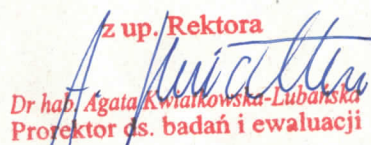 z up. Rektora
Dr hab. Agata Kwiatkowska-Lubańska
Prorektor ds. badań i ewaluacji